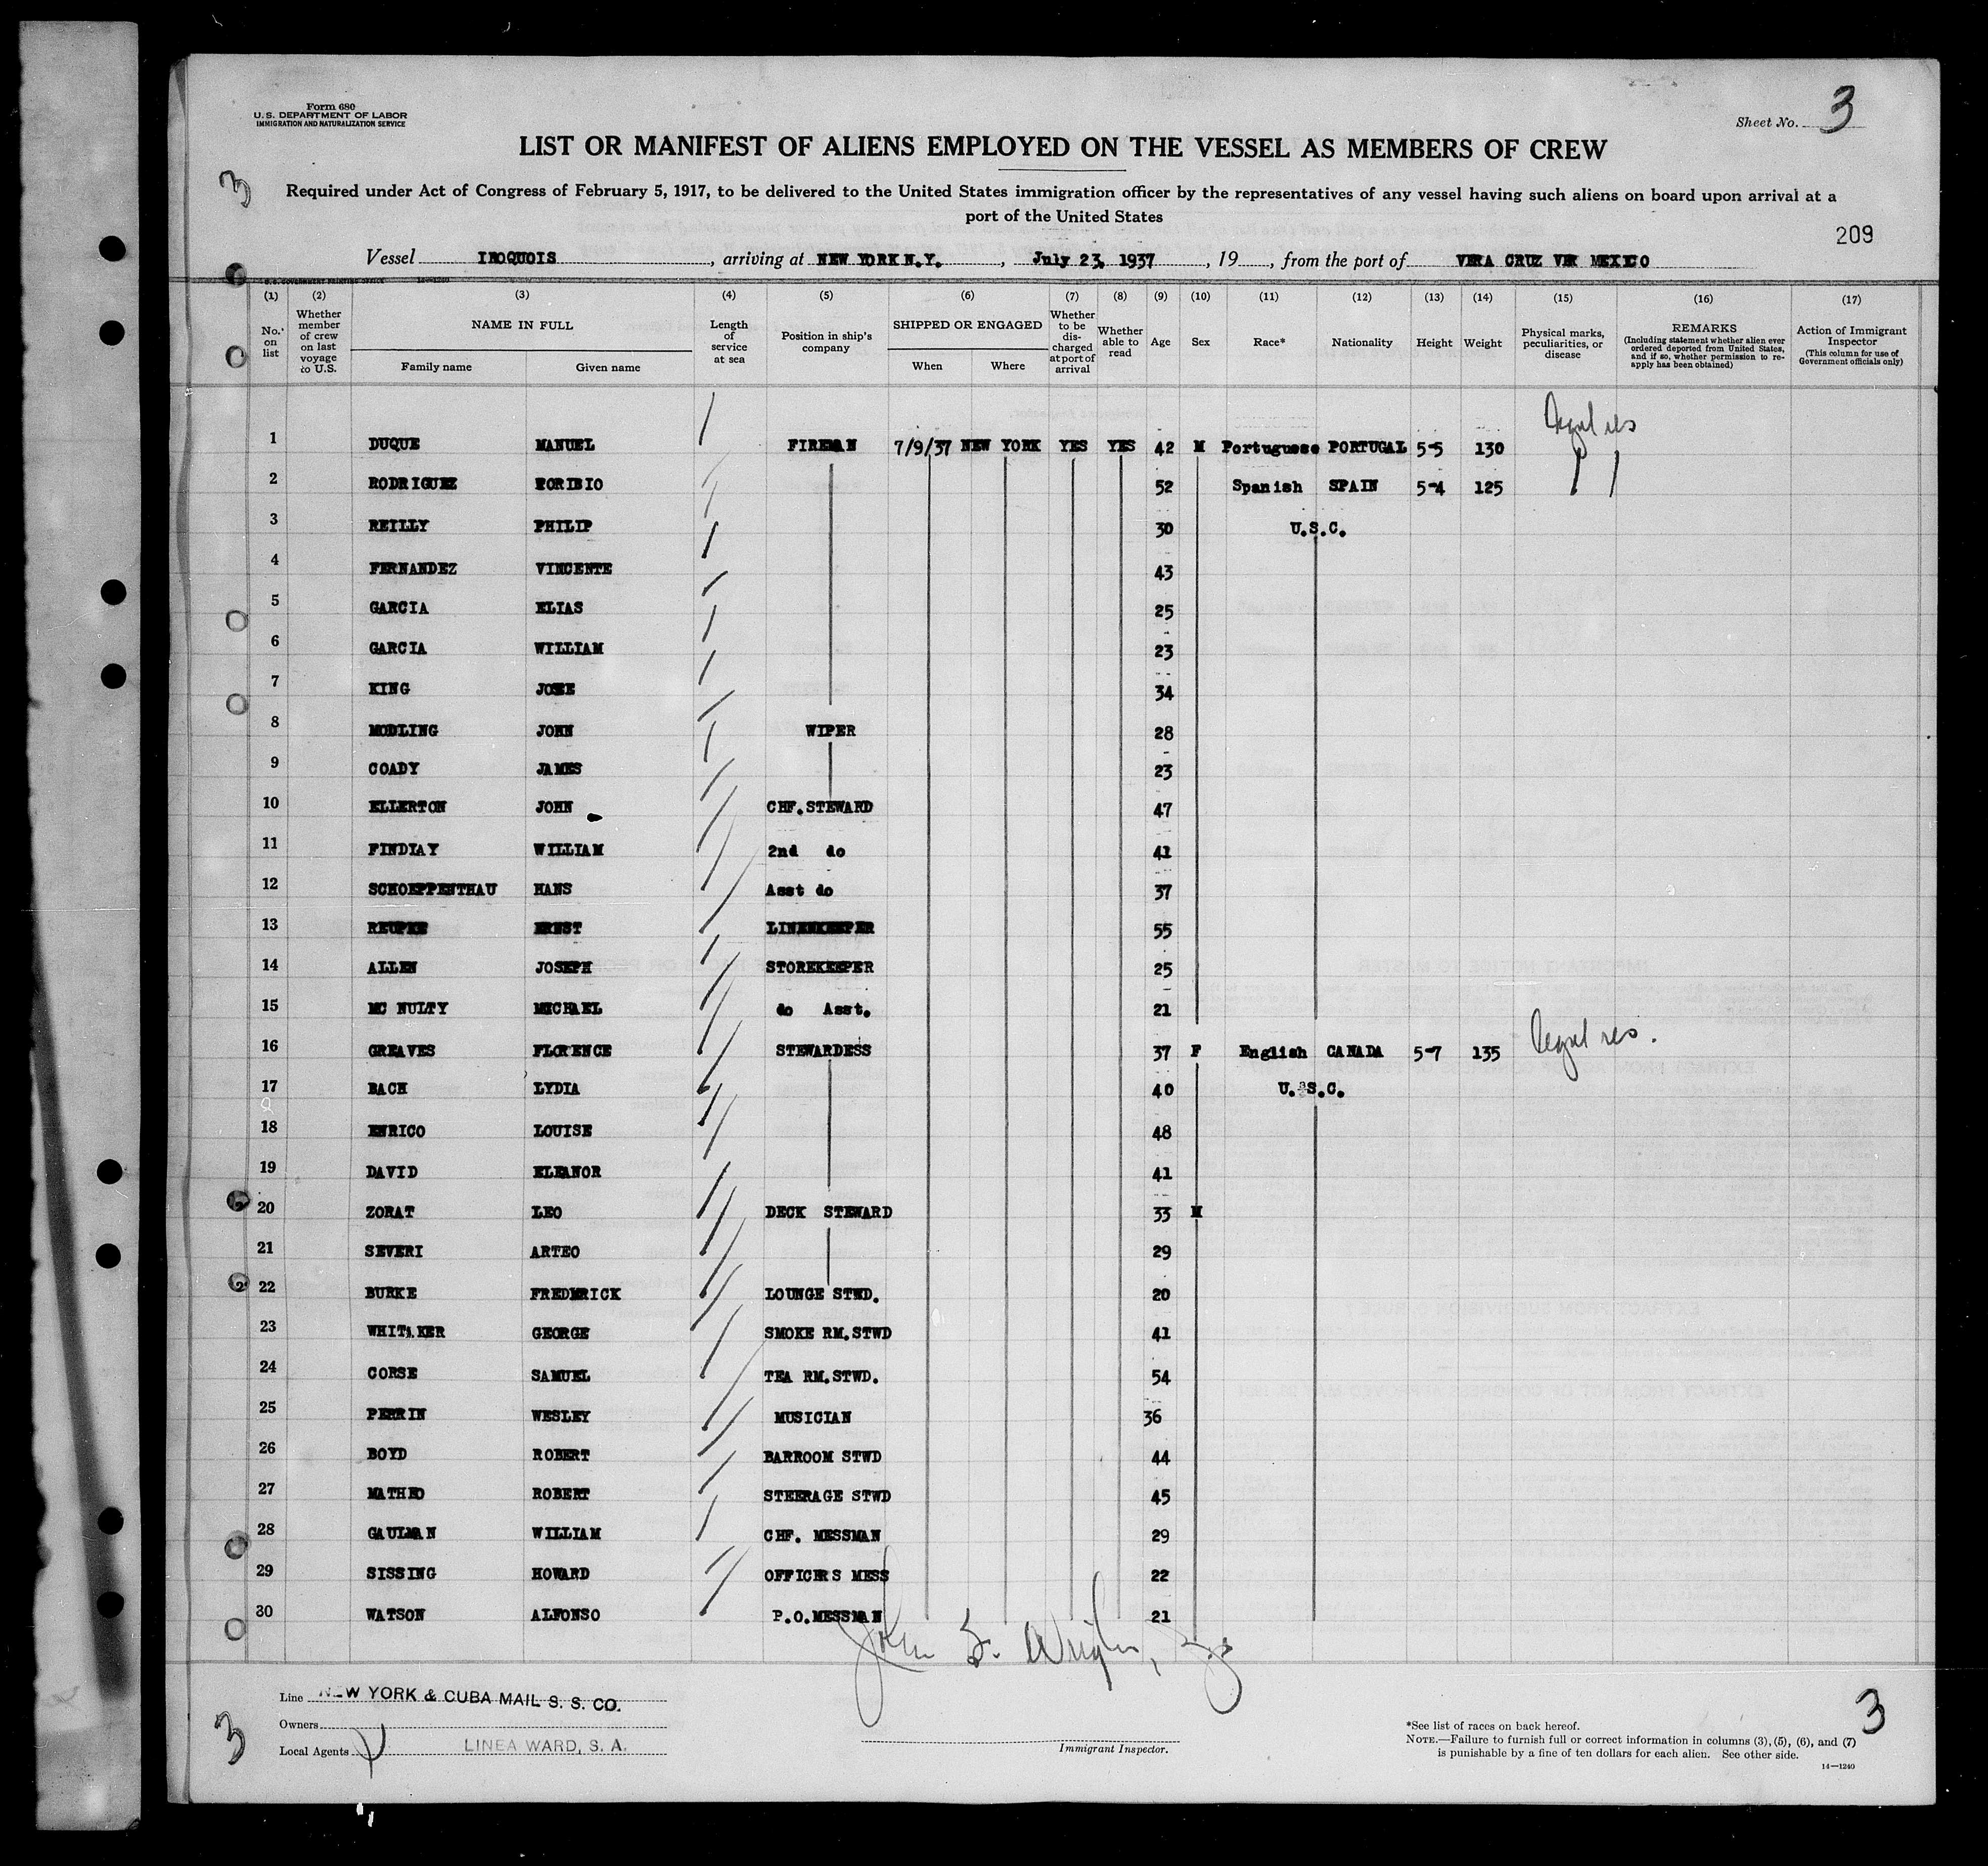 Form 680
U. S. DEPARTMENT OF LABOR
IMMIGRATION AND NATURALIZATION SERVICE
Sheet No. 3
LIST OR MANIFEST OF ALIENS EMPLOYED ON THE VESSEL AS MEMBERS OF CREW
3
Required under Act of Congress of February 5, 1917, to be delivered to the United States immigration officer by the representatives of any vessel having such aliens on board upon arrival at a
port of the United States
209
Vessel IROQUOIS, arriving at NEW YORK N.Y., July 23, 1937, 19, from the port of VERA CRUZ VER MEXICO
U. S. GOVERNMENT PRINTING OFFICE 14—1240
(1) (2) (3) (4) (5) (6) (7) (8) (9) (10) (11) (12) (13) (14) (15) (16) (17)
No. on list
Whether member of crew on last voyage to U.S.
NAME IN FULL
Family name Given name
Length of service at sea
Position in ship's company
SHIPPED OR ENGAGED
When Where
Whether to be discharged at port of arrival
Whether able to read
Age Sex Race* Nationality Height Weight
Physical marks, peculiarities, or disease
REMARKS
(Including statement whether alien ever ordered deported from United States, and if so, whether permission to reapply has been obtained)
Action of Immigrant Inspector
(This column for use of Government officials only)
1 DUQUE MANUEL FIREMAN 7/9/37 NEW YORK YES YES 42 M Portuguese PORTUGAL 5-5 130 legal res
2 RODRIGUEZ TORIBIO 52 Spanish SPAIN 5-4 125
3 REILLY PHILIP 30 U.S.C.
4 FERNANDEZ VINCENTE 43
5 GARCIA ELIAS 25
6 GARCIA WILLIAM 23
7 KING JOSE 34
8 MODLING JOHN WIPER 28
9 COADY JAMES 23
10 ELLERTON JOHN CHF.STEWARD 47
11 FINDLAY WILLIAM 2nd do 41
12 SCHOEPPENTHAU HANS Asst do 37
13 REUPKE ERNST LINENKEEPER 55
14 ALLEN JOSEPH STOREKEEPER 25
15 MC NULTY MICHAEL do Asst. 21
16 GREAVES FLORENCE STEWARDESS 37 F English CANADA 5-7 135 legal res.
17 BACH LYDIA 40 U.S.C.
18 ENRICO LOUISE 48
19 DAVID ELEANOR 41
20 ZORAT LEO DECK STEWARD 33 M
21 SEVERI ARTEO 29
22 BURKE FREDERICK LOUNGE STWD. 20
23 WHITAKER GEORGE SMOKE RM.STWD 41
24 CORSE SAMUEL TEA RM.STWD. 54
25 PERRIN WESLEY MUSICIAN 36
26 BOYD ROBERT BARROOM STWD 44
27 MATHEO ROBERT STEERAGE STWD 45
28 GAULMAN WILLIAM CHF. MESSMAN 29
29 SISSING HOWARD OFFICERS MESS 22
30 WATSON ALFONSO P.O.MESSMAN 21
Line NEW YORK & CUBA MAIL S. S. CO.
Owners
Local Agents LINEA WARD, S. A.
3
Immigrant Inspector.
*See list of races on back hereof.
NOTE.—Failure to furnish full or correct information in columns (3), (5), (6), and (7)
is punishable by a fine of ten dollars for each alien. See other side.
14—1240
3